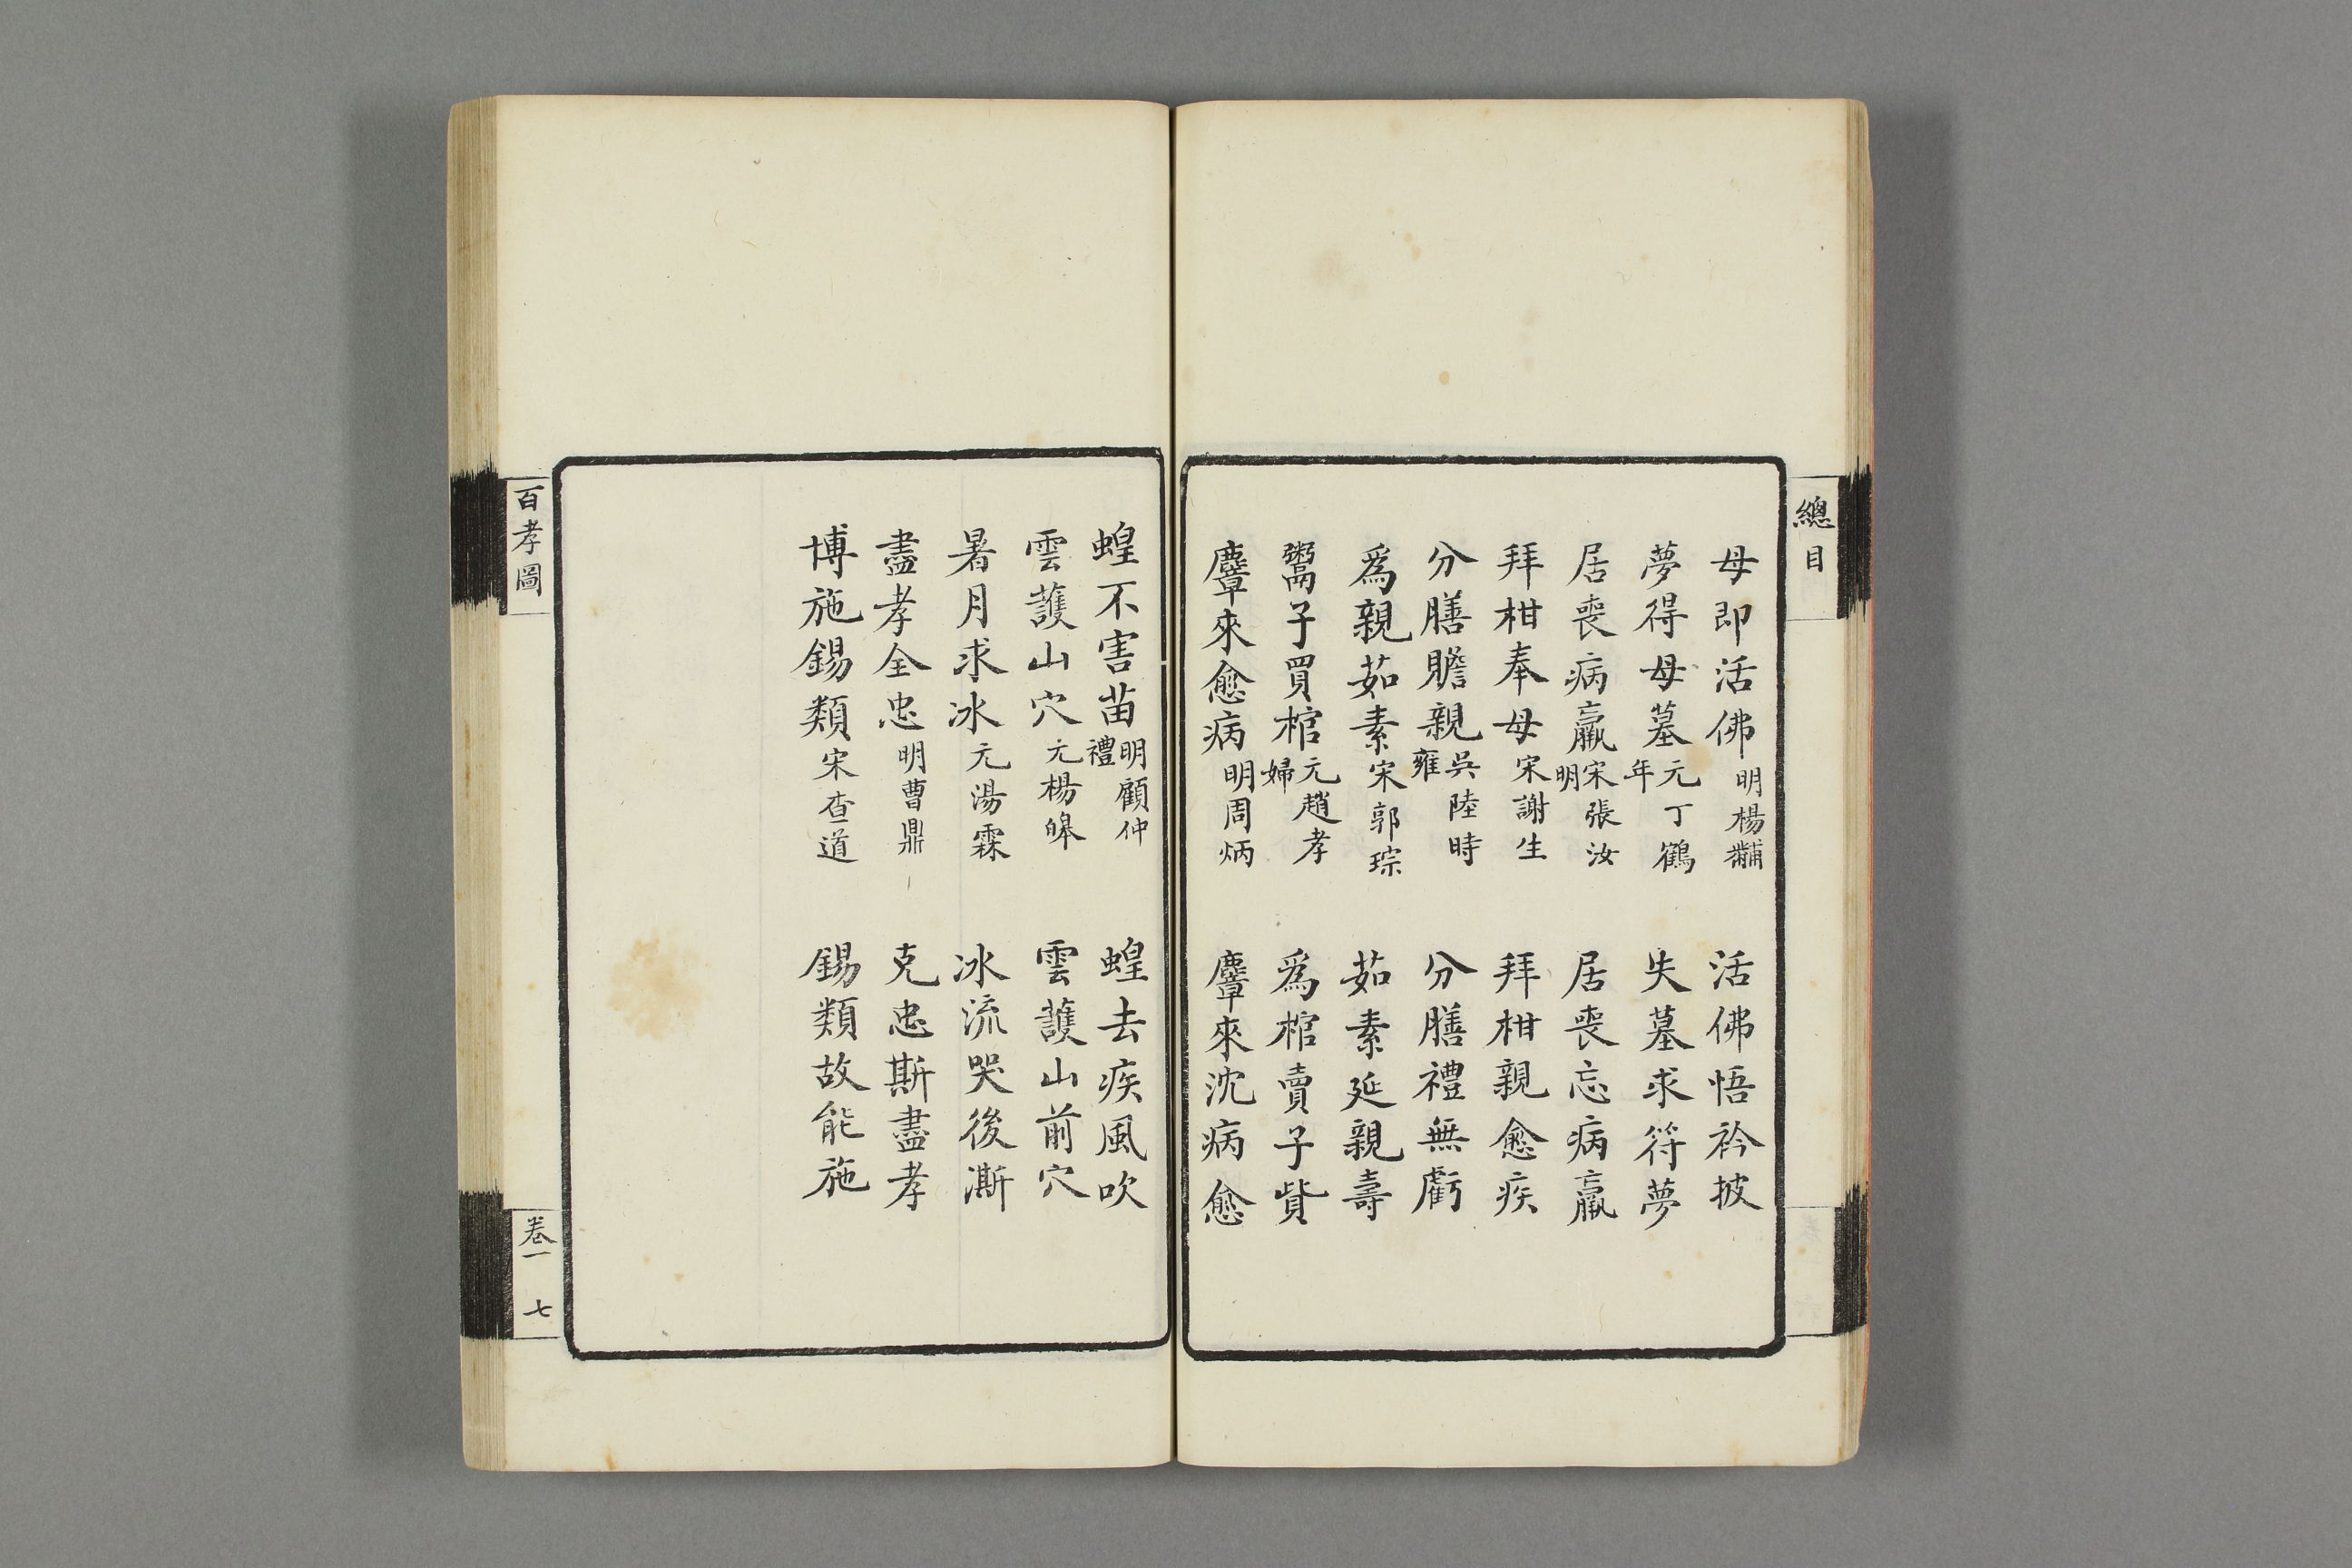 總目
母即活佛 明楊黼 活佛悟衿披
夢得母墓 元丁鶴年 失墓求符夢
居喪病羸 宋張汝明 居喪忘病羸
拜柑奉母 宋謝生 拜柑親愈疾
分膳贍親 吳陸時雍 分膳禮無虧
爲親茹素 宋郭琮 茹素延親壽
鬻子買棺 元趙孝婦 爲棺賣子貲
麞來愈病 明周炳 麞來沈病愈
蝗不害苗 明顧仲禮 蝗去疾風吹
雲護山穴 元楊皞 雲護山前穴
暑月求冰 元湯霖 冰流哭後澌
盡孝全忠 明曹鼎 克忠斯盡孝
博施錫類 宋查道 錫類故能施
百孝圖
卷一 七